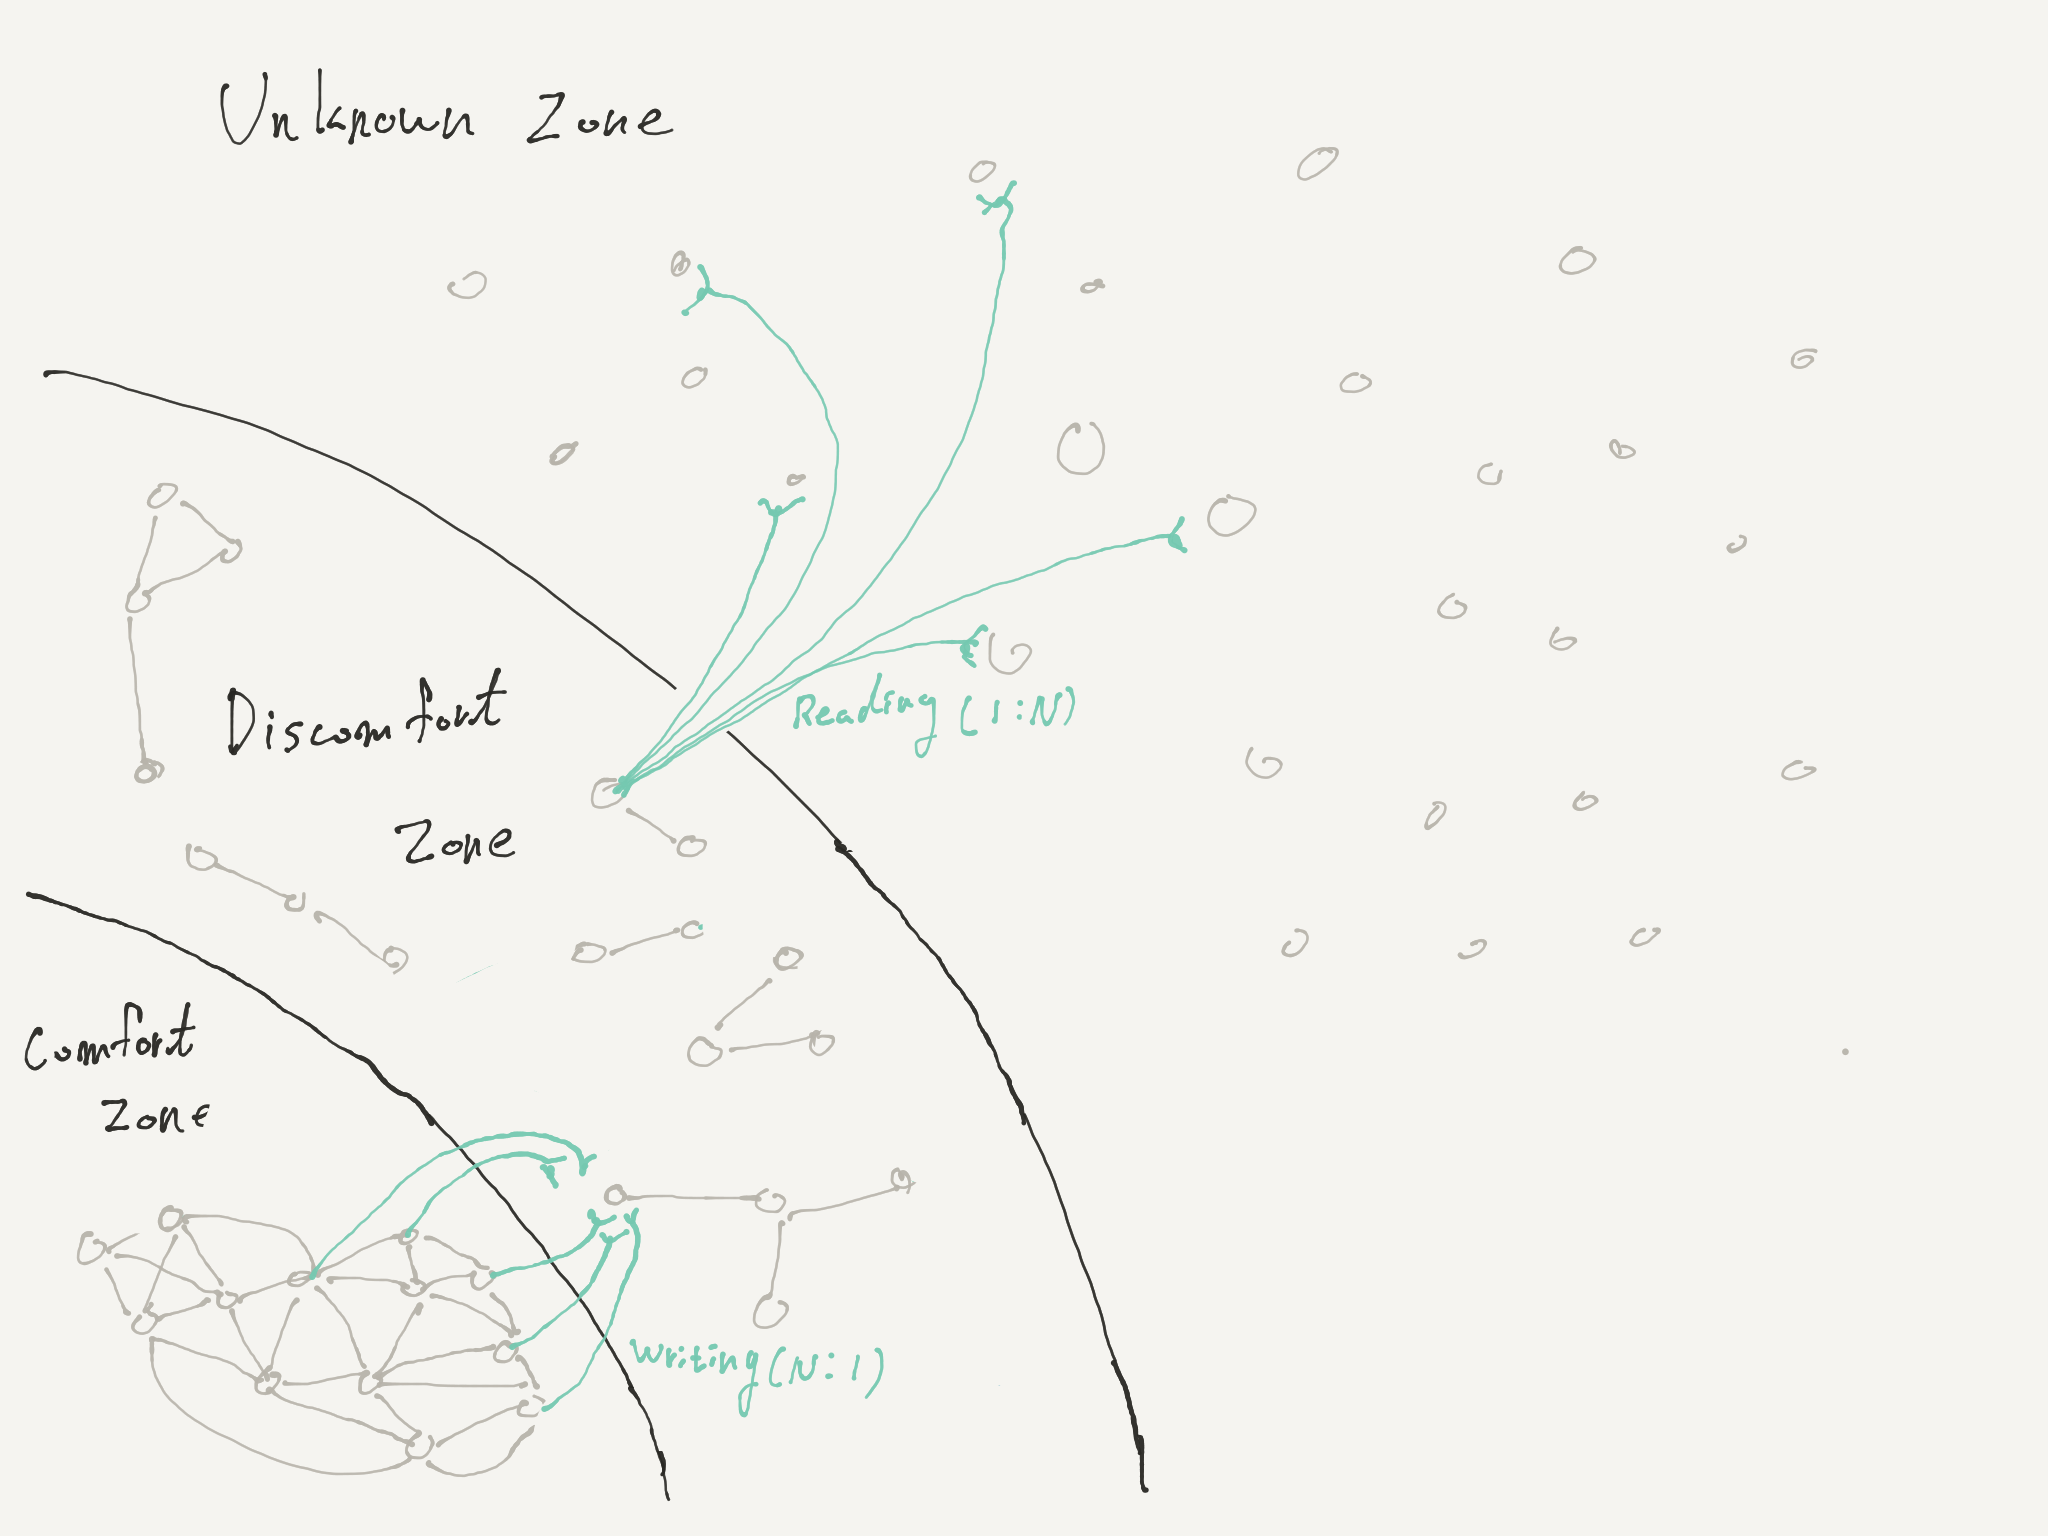 Unknown Zone
Discomfort
Zone
Reading (1:N)
Comfort
Zone
Writing (N:1)